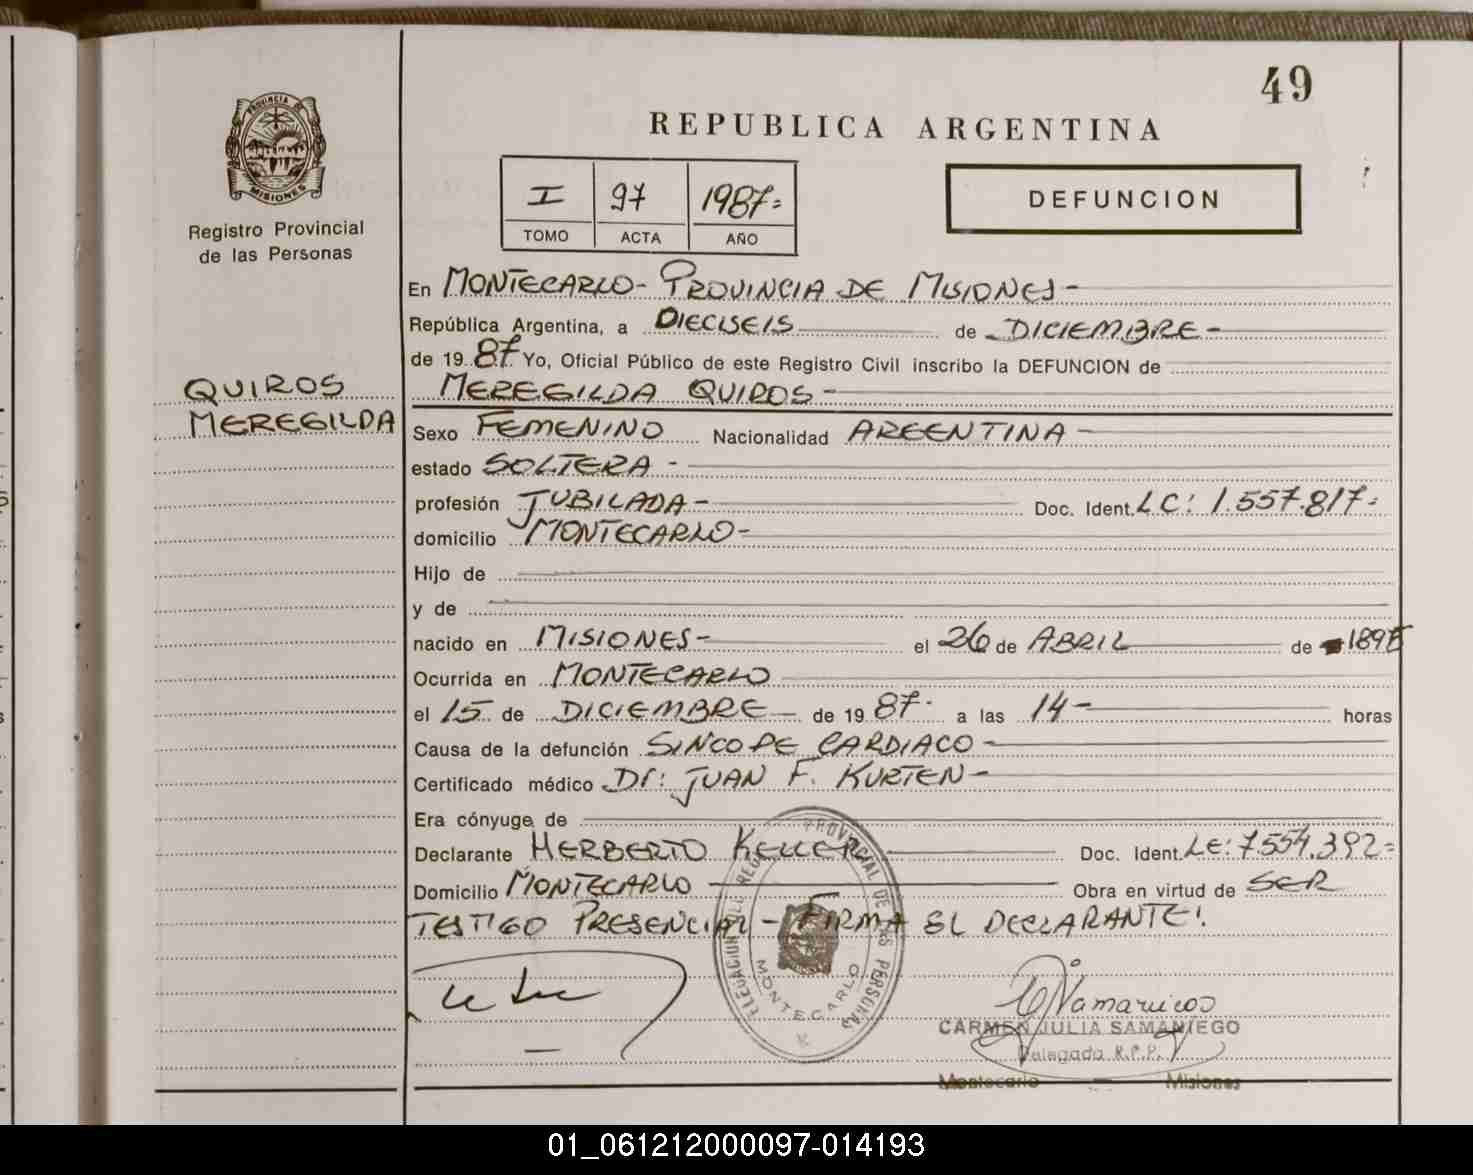 49
PROVINCIA DE
MISIONES
Registro Provincial
de las Personas
REPUBLICA ARGENTINA
I 97 1987=
TOMO ACTA AÑO
DEFUNCION
En MONTECARLO- PROVINCIA DE MISIONES-
República Argentina, a DIECISEIS de DICIEMBRE-
de 19 87 Yo, Oficial Público de este Registro Civil inscribo la DEFUNCION de
QUIROS
MEREGILDA
MEREGILDA QUIROS-
Sexo FEMENINO Nacionalidad ARGENTINA-
estado SOLTERA-
profesión JUBILADA- Doc. Ident. LC: 1.557.817=
domicilio MONTECARLO-
Hijo de
y de
nacido en MISIONES- el 26 de ABRIL de
Ocurrida en MONTECARLO
el 15 de DICIEMBRE- de 19 87. a las 14- horas
Causa de la defunción SINCOPE CARDIACO-
Certificado médico Dr: JUAN F. KURTEN-
Era cónyuge de
Declarante HERBERTO KELLER Doc. Ident. LE: 7.554.392=
Domicilio MONTECARLO Obra en virtud de SER
TESTIGO PRESENCIAL- FIRMA EL DECLARANTE!
PROVINCIAL DE LAS PERSONAS
MONTECARLO
CARMEN JULIA SAMANIEGO
Delegada R.P.P.
Montecarlo — Misiones
01_061212000097-014193